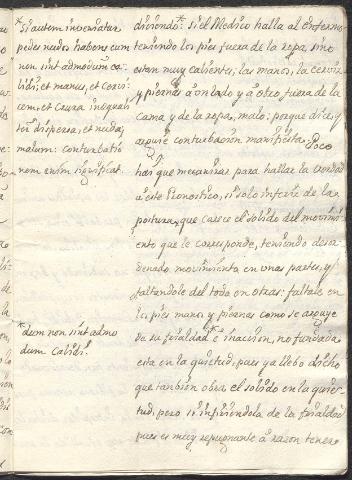 *Si autem inveniatur
pedes nudos habens cum
non sint admodum ca-
lidi; et manus, et Cervi-
cem, et Crura inequali
ter dispersa, et nuda;
malum: conturbatio
nem enim significat.
*dum non sint admo
dum Calidi.
diciendo:* si el Medico halla al enfermo
teniendo los pies fuera de la ropa, sino
estan muy calientes; las manos, la Cerviz
y piernas à un lado y à otro fuera de la
Cama y de la ropa, malo: porque dice, q
arguie conturbación manifiesta. Poco
hás que mecanizar para hallar la verdad
à este Pronostico, si solo infieres de la
postura, que carece el solido del movimi-
ento que le corresponde, teniendo desor
denado movimiento en unas partes, y
faltandole del todo en otras: faltale en
los pies manos y piernas como se arguye
de su frialdad è inaccion, no fundada
esta en la quietud, pues ya llebo dicho
que tanbien obra el solido en la quie-
tud, pero si infiriendola de la frialdad
pues es muy repugnante à razon tener